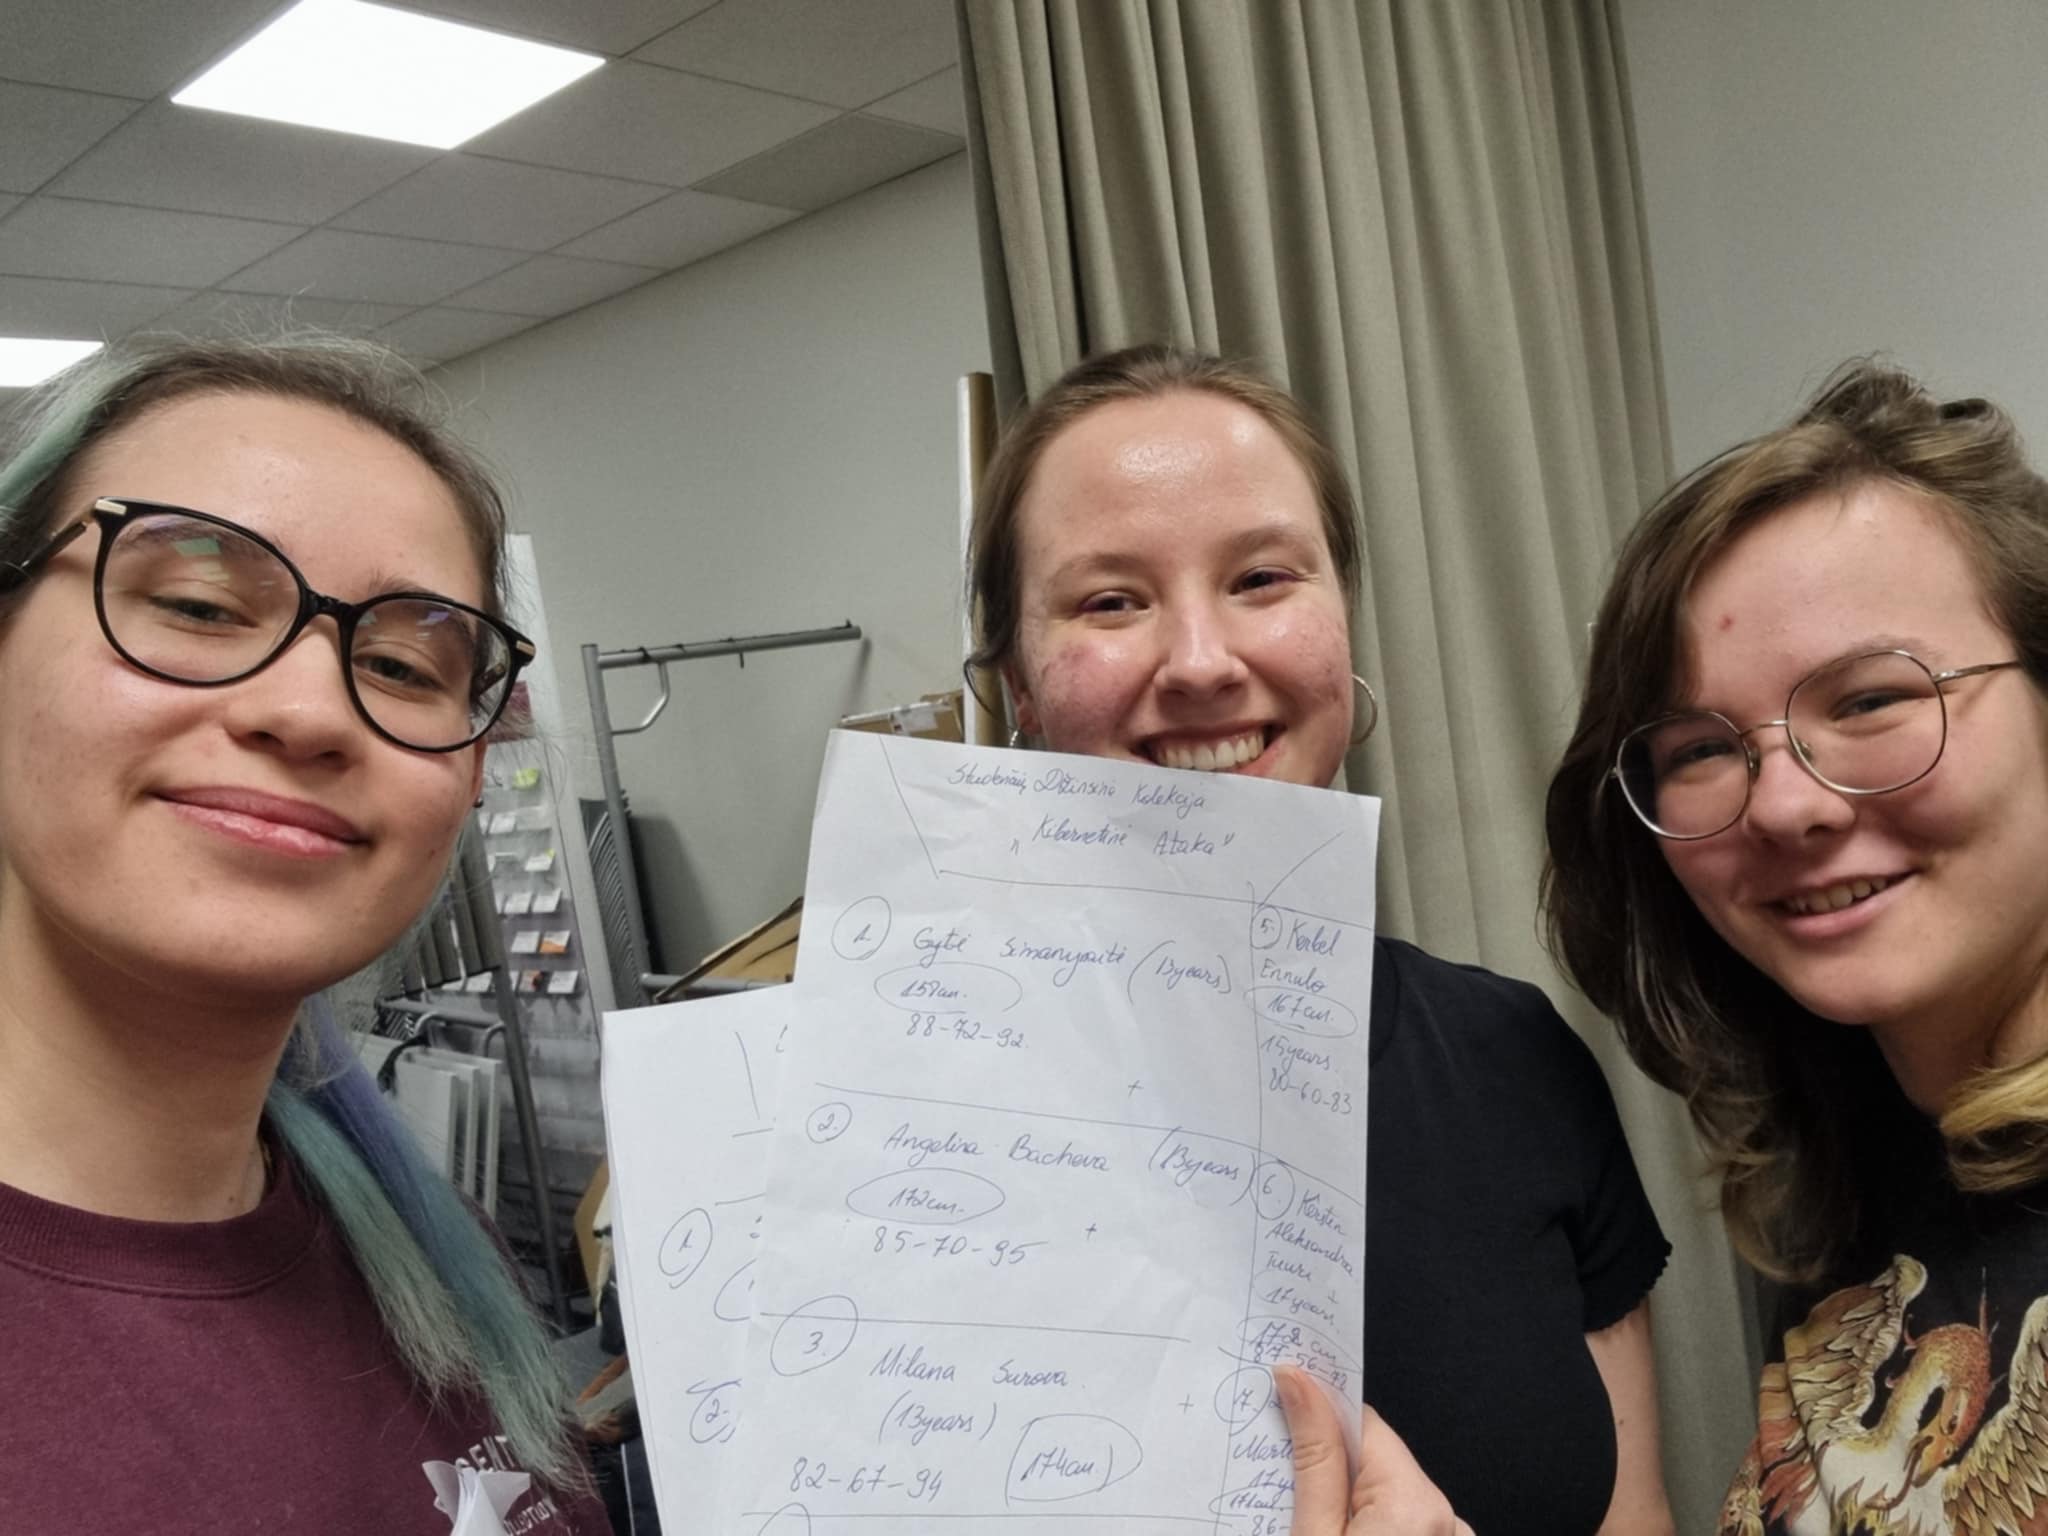 Studenčių Džinsinė Kolekcija
„Kibernetinė Ataka"
1. Gytė Simanynaitė (13years)
158cm.
88-72-92.
+
2. Angelina Bachova (13years)
172cm.
85-70-95
+
3. Milana Surova.
(13years)
174cm.
+
82-67-94
5. Kerbel
Ennulo
167cm.
15years.
80-60-83
6. Kersten
Aleksandra
Tuuri +
17years.
172 cm
87-56-
7.
171cm.
86-
1.
2.